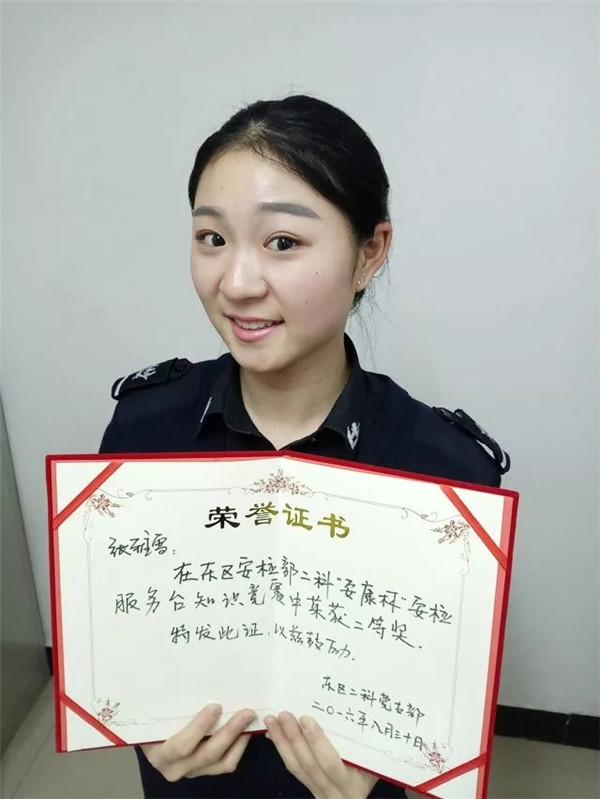 荣誉证书
张雅雪：
在东区安检部二科"安康杯"安检
服务台知识竞赛中荣获二等奖．
特发此证．以兹鼓励．
东区二科党支部
二〇一六年八月三十日